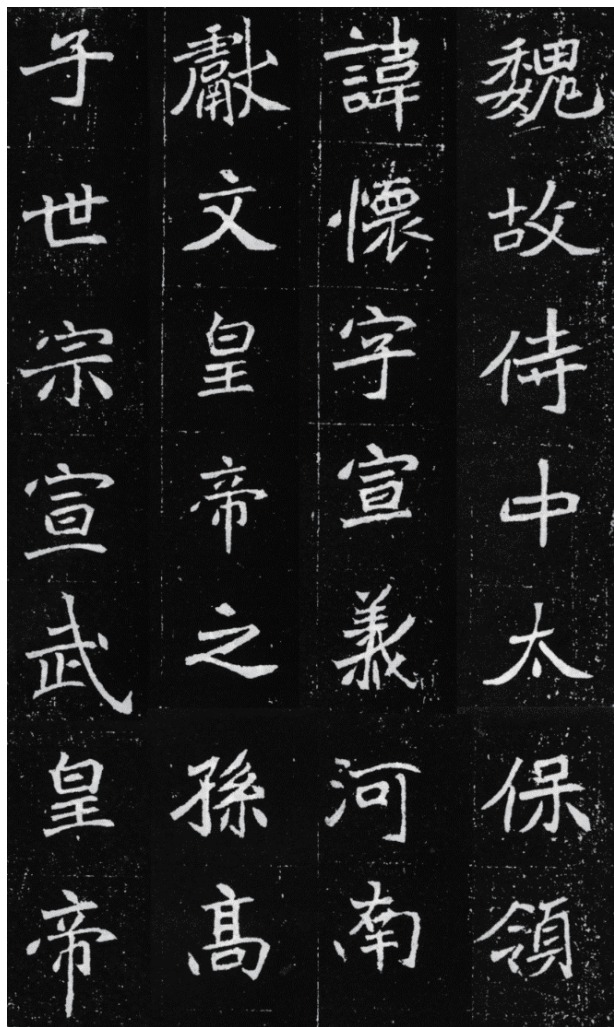 魏故侍中太保領
諱懷字宣義河南
獻文皇帝之孫髙
子世宗宣武皇帝